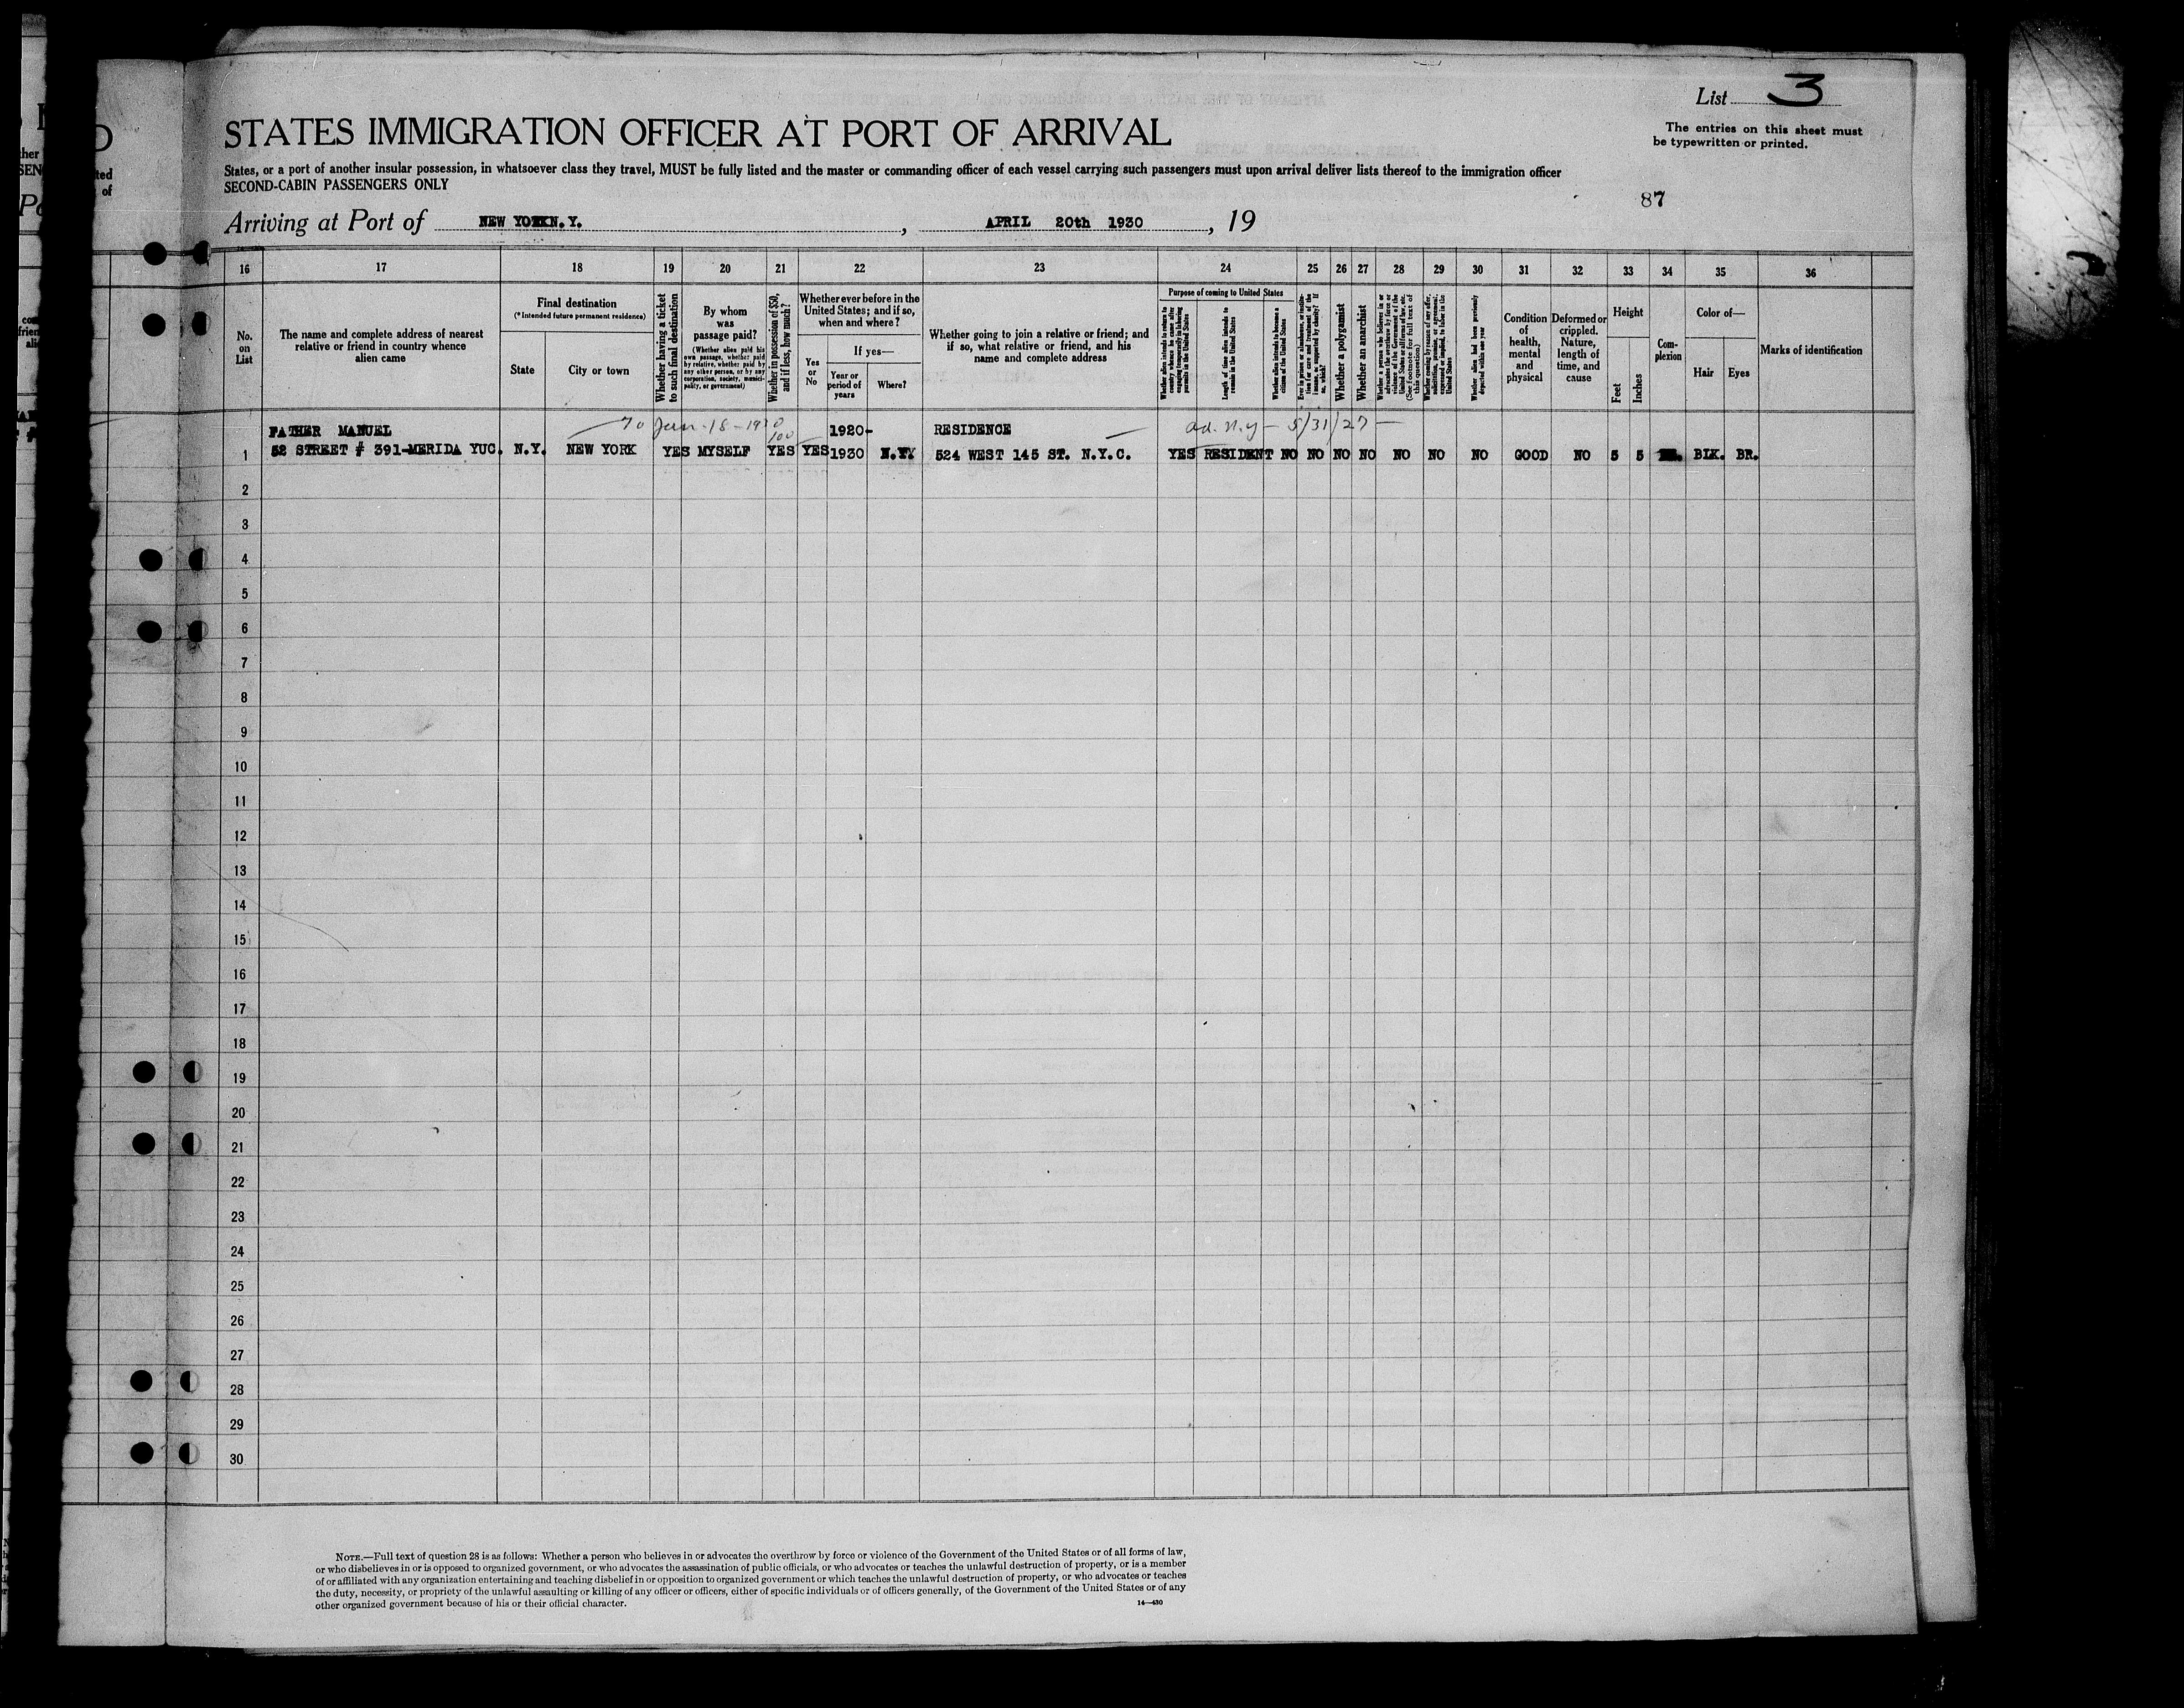 List 3
STATES IMMIGRATION OFFICER AT PORT OF ARRIVAL
The entries on this sheet must
be typewritten or printed.
States, or a port of another insular possession, in whatsoever class they travel, MUST be fully listed and the master or commanding officer of each vessel carrying such passengers must upon arrival deliver lists thereof to the immigration officer
SECOND-CABIN PASSENGERS ONLY
87
Arriving at Port of NEW YORK N.Y. , APRIL 20th 1930 , 19
16 17 18 19 20 21 22 23 24 25 26 27 28 29 30 31 32 33 34 35 36
No. on List
The name and complete address of nearest
relative or friend in country whence
alien came
Final destination
(*Intended future permanent residence)
State
City or town
Whether having a ticket
to such final destination
By whom
was
passage paid?
(Whether alien paid his
own passage, whether paid
by relative, whether paid by
any other person, or by any
corporation, society, munici-
pality, or government)
Whether in possession of $50,
and if less, how much?
Whether ever before in the
United States; and if so,
when and where?
Yes
or
No
If yes—
Year or
period of
years
Where?
Whether going to join a relative or friend; and
if so, what relative or friend, and his
name and complete address
Purpose of coming to United States
Whether alien intends to return to
country whence he came after
engaging temporarily in laboring
pursuits in the United States
Length of time alien intends to
remain in the United States
Whether alien intends to become a
citizen of the United States
Ever in prison or almshouse, or institu-
tion for care and treatment of the
insane, or supported by charity? If
so, which?
Whether a polygamist
Whether an anarchist
Whether a person who believes in or
advocates the overthrow by force or
violence of the Government of the
United States or all forms of law, etc.
(See footnote for full text of
this question)
Whether coming by reason of any offer,
solicitation, promise, or agreement,
expressed or implied, to labor in the
United States
Whether alien had been previously
deported within one year
Condition
of
health,
mental
and
physical
Deformed or
crippled.
Nature,
length of
time, and
cause
Height
Feet
Inches
Com-
plexion
Color of—
Hair
Eyes
Marks of identification
70 Jan-18-1930
100
ad. N.Y - 5/31/27 -
FATHER MANUEL 1920- RESIDENCE
1 52 STREET # 391-MERIDA YUC. N.Y. NEW YORK YES MYSELF YES YES 1930 N.Y. 524 WEST 145 ST. N.Y.C. YES RESIDENT NO NO NO NO NO NO NO GOOD NO 5 5 BLK. BR.
2
3
4
5
6
7
8
9
10
11
12
13
14
15
16
17
18
19
20
21
22
23
24
25
26
27
28
29
30
NOTE.—Full text of question 28 is as follows: Whether a person who believes in or advocates the overthrow by force or violence of the Government of the United States or of all forms of law,
or who disbelieves in or is opposed to organized government, or who advocates the assassination of public officials, or who advocates or teaches the unlawful destruction of property, or is a member
of or affiliated with any organization entertaining and teaching disbelief in or opposition to organized government or which teaches the unlawful destruction of property, or who advocates or teaches
the duty, necessity, or propriety of the unlawful assaulting or killing of any officer or officers, either of specific individuals or of officers generally, of the Government of the United States or of any
other organized government because of his or their official character.
14—430